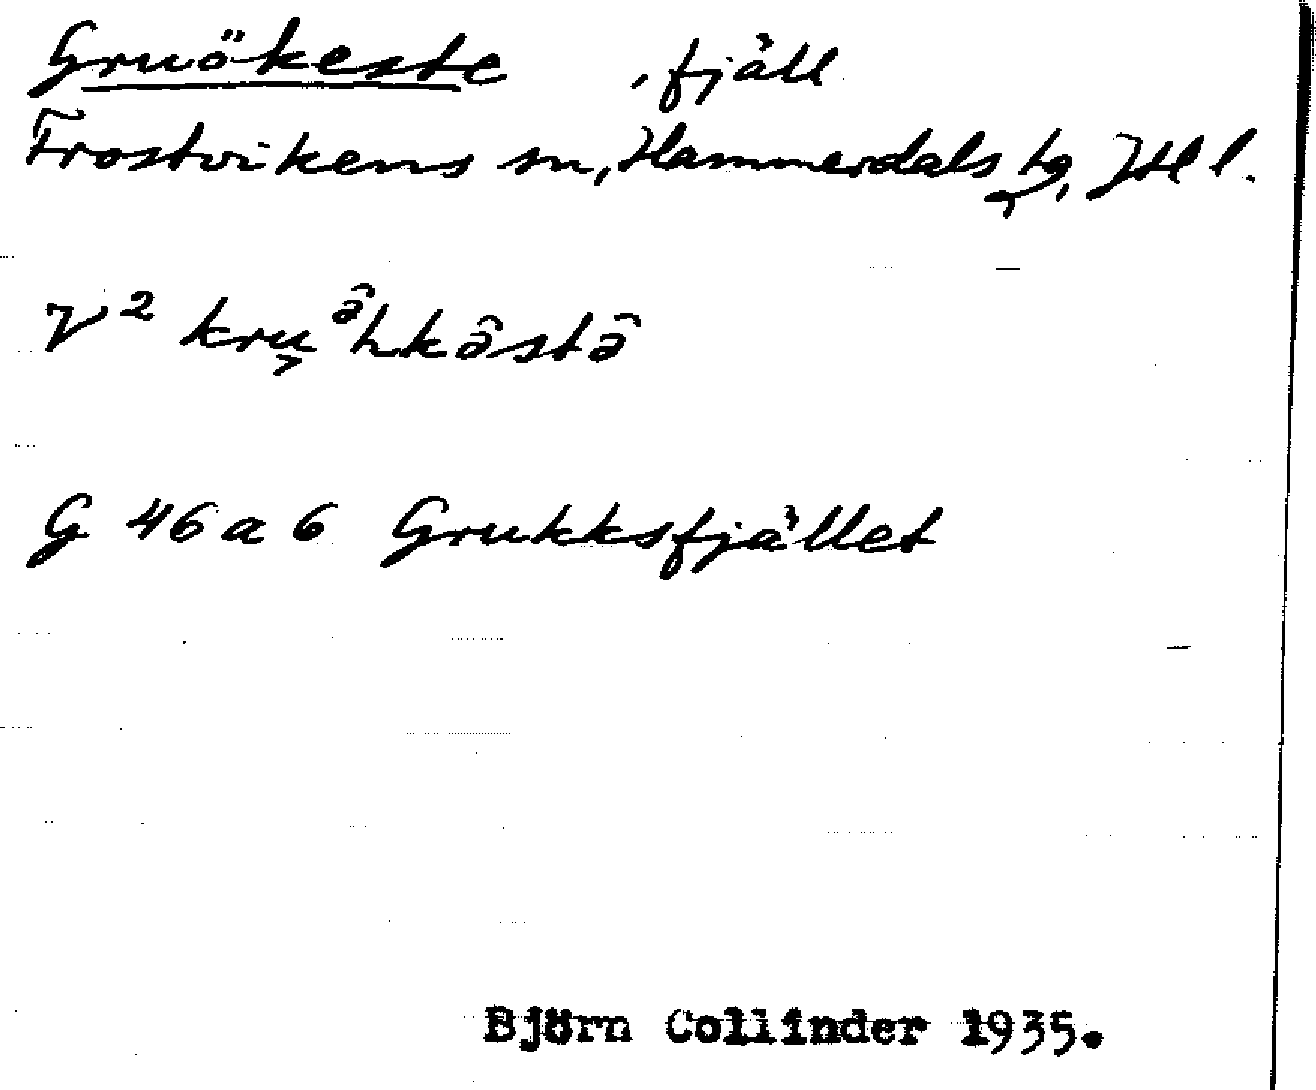 Gruökeste , fjäll
Frostvikens sn, Hammerdals tg, Jtl l.
V² kru̬ᵊ̂hkə̂stə̂
G 46 a 6 Grukksfjället
Björn Collinder 1935.